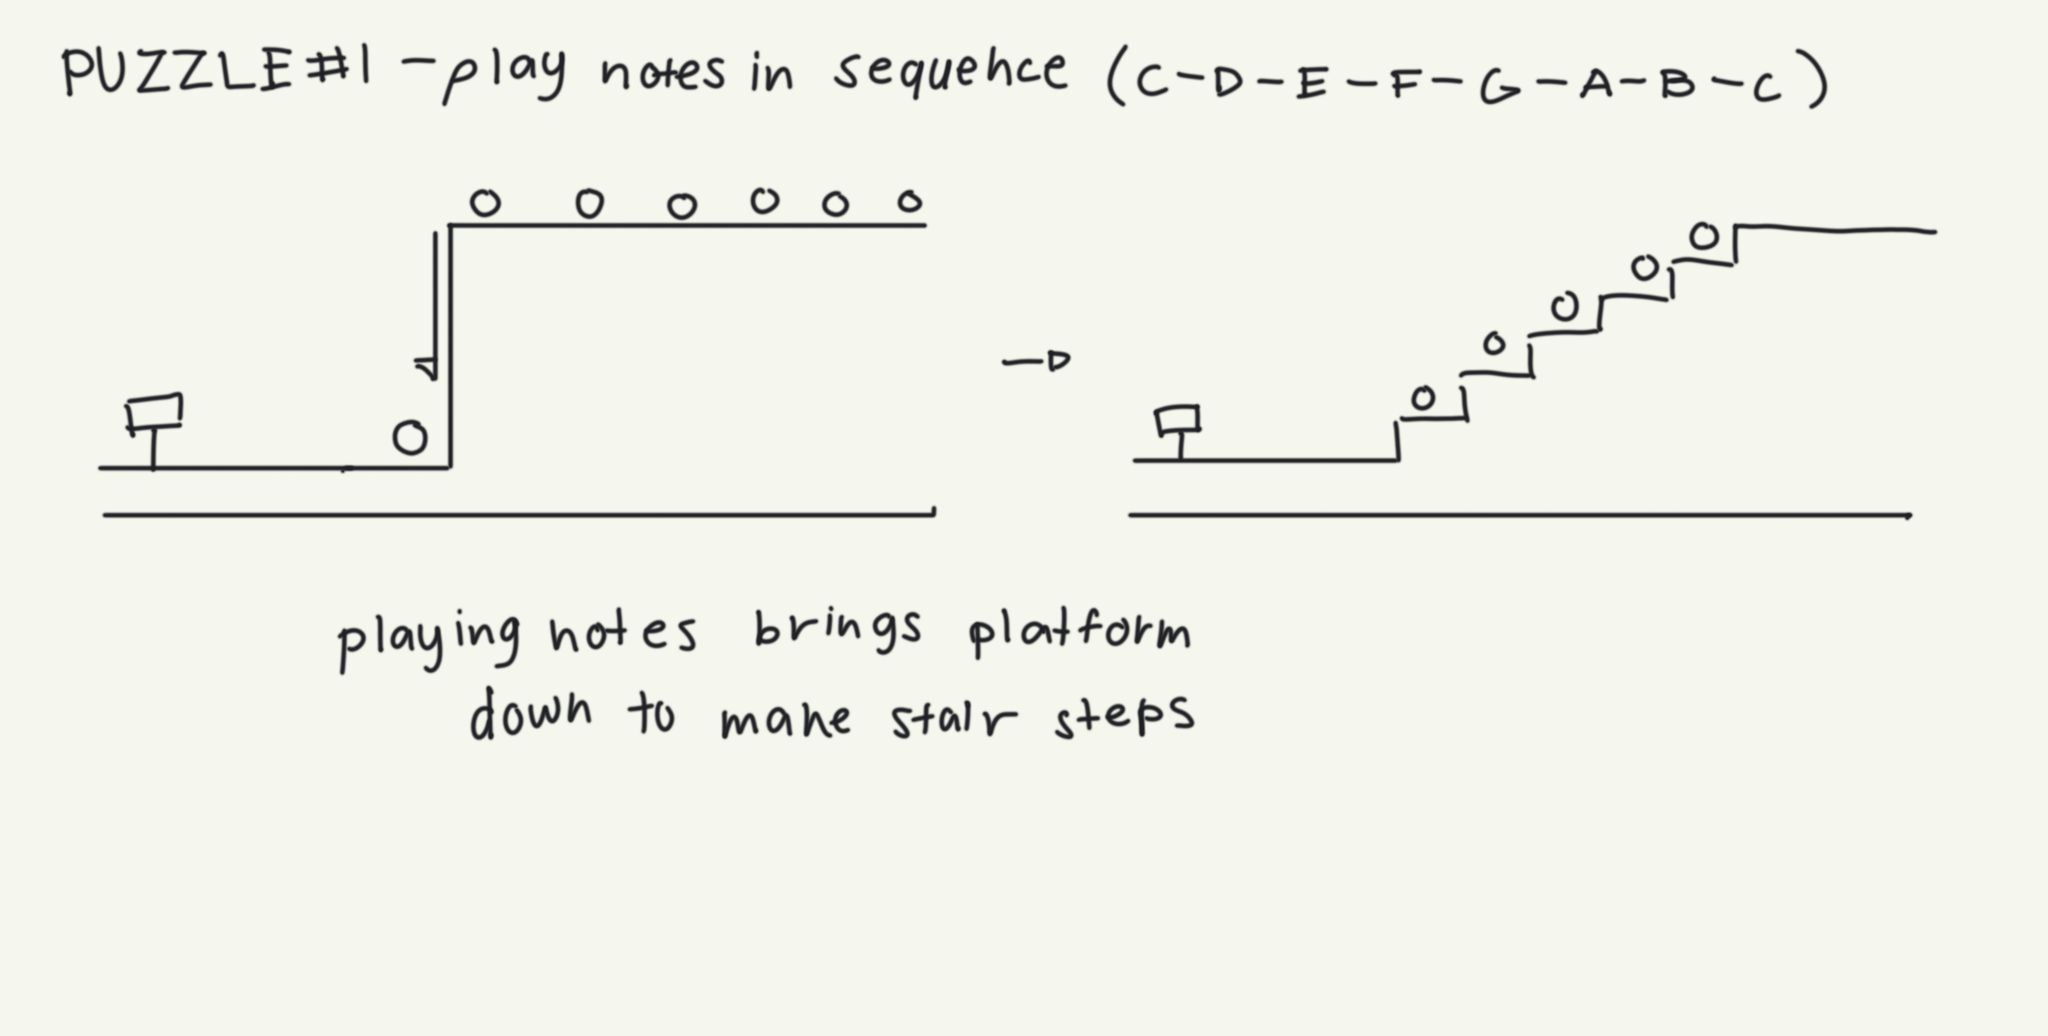 PUZZLE #1 - play notes in sequence (C-D-E-F-G-A-B-C)
playing notes brings platform
down to make stair steps